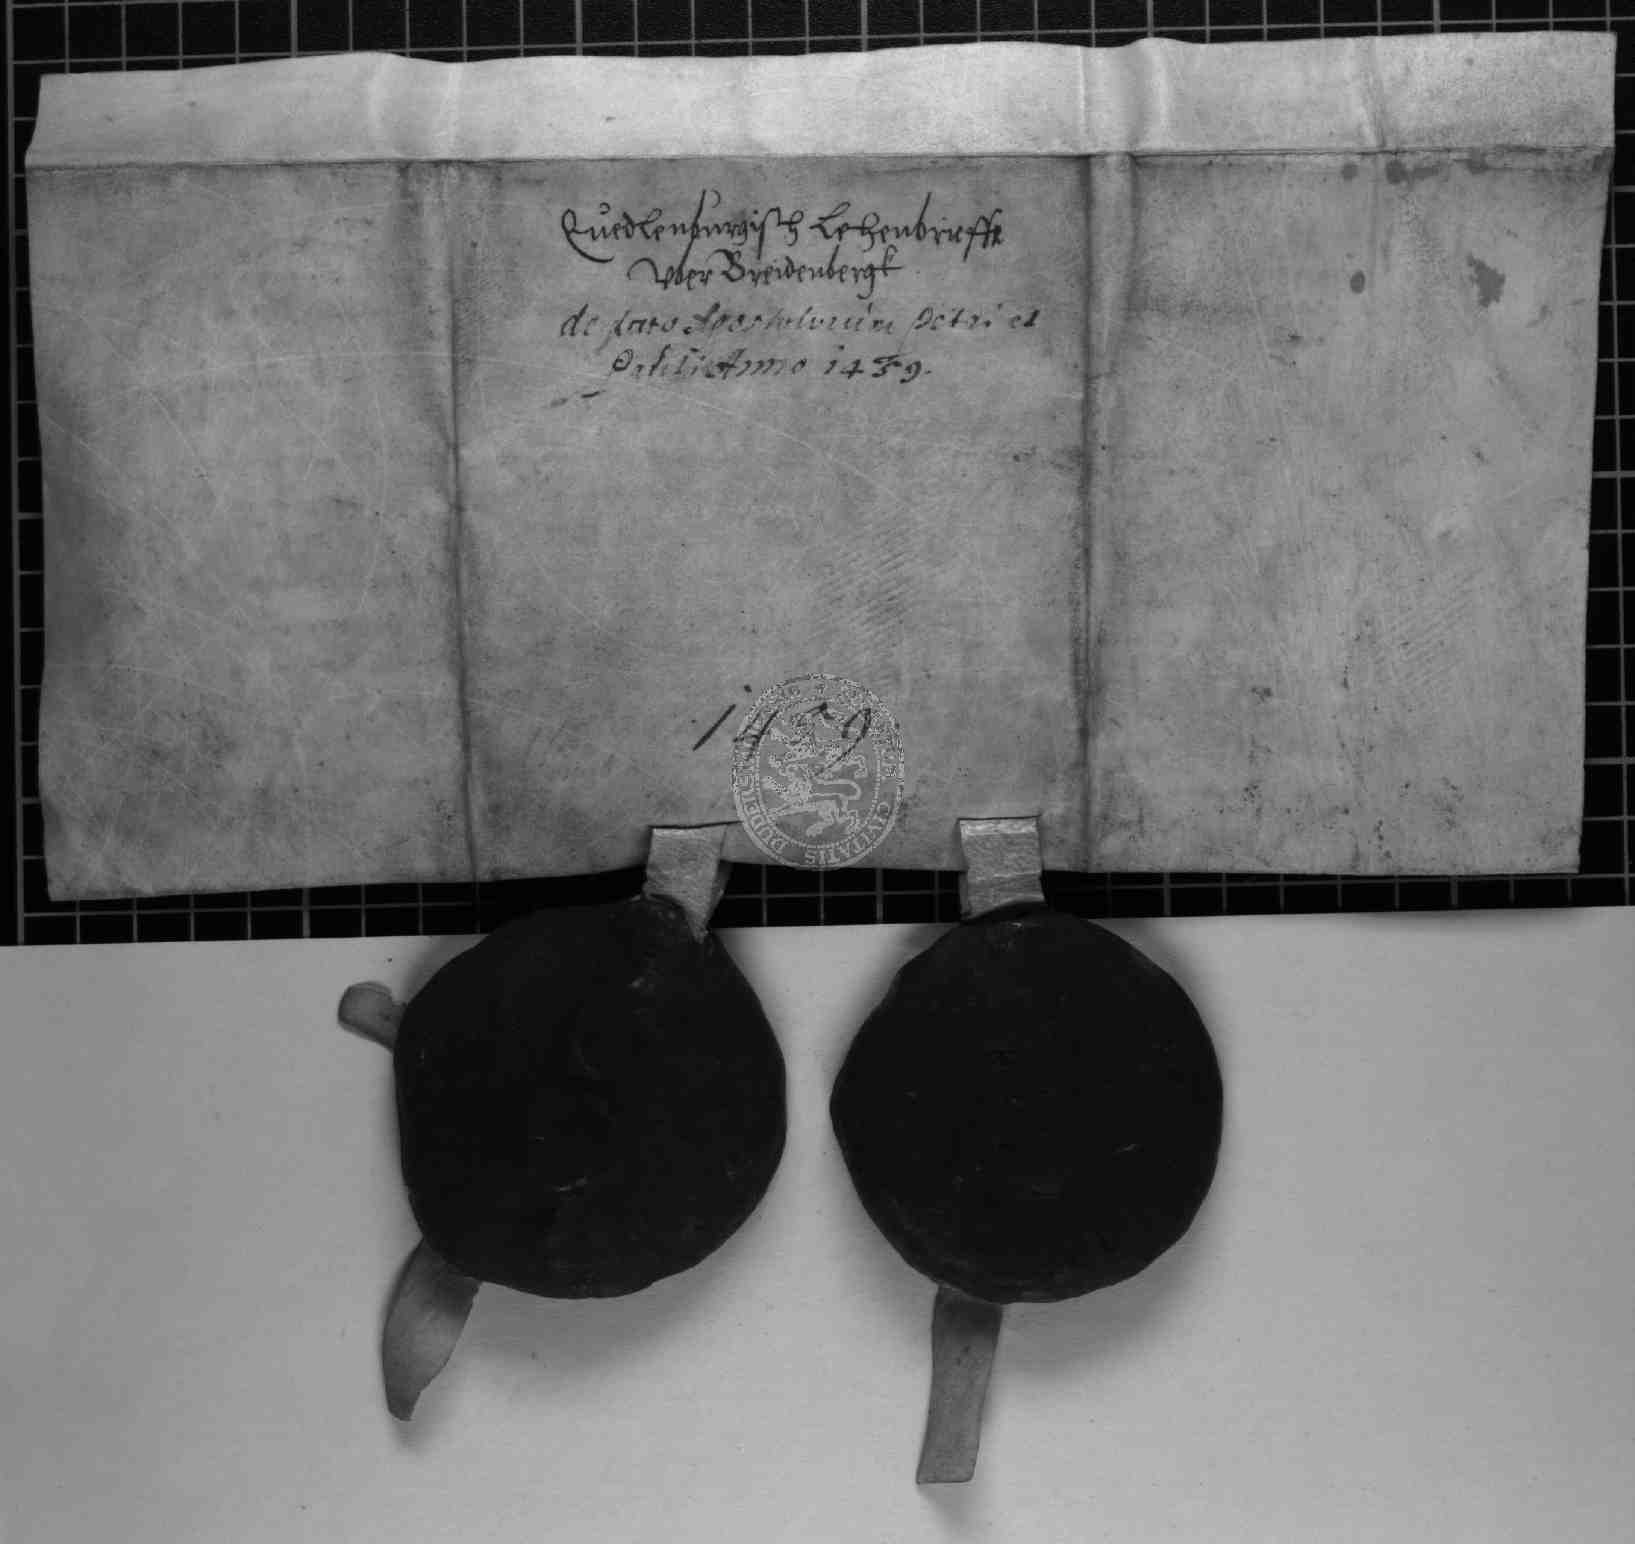 Quedlenburgisch Lehenbrieffe
vber Breidenbergk
de dato Apostolorum Petri et
Pauli Anno 1459.
1459
CIVITATIS